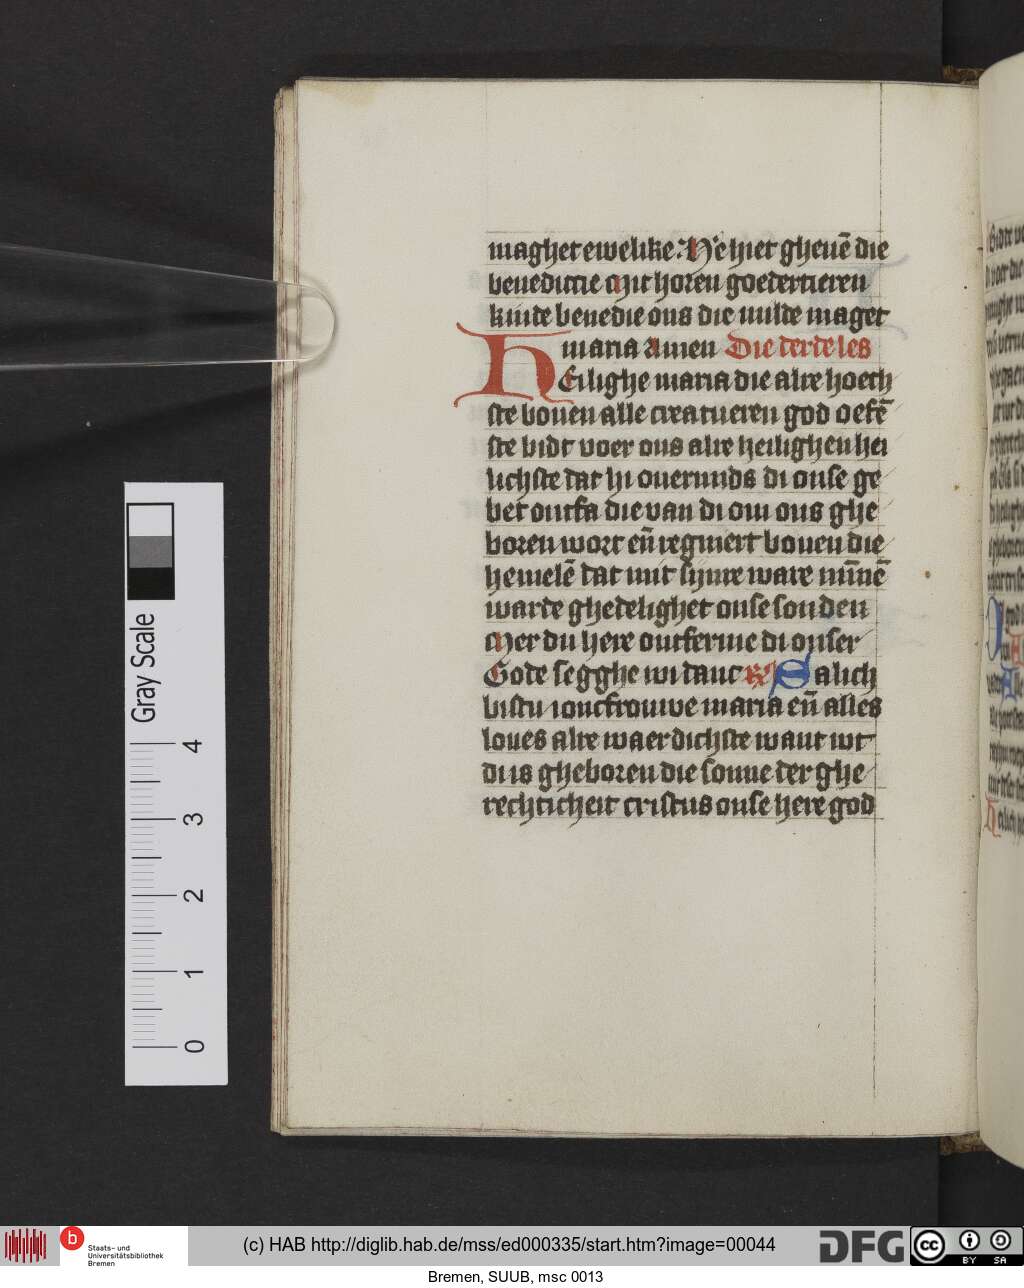 maghet ewelike. He hiet gheuē die
benedictie Mit horen goedertieren
kinde benedie ons die milde maget
maria Amen Die derde les
HEilighe maria die alre hoech
ste bouen alle creatueren god oefē
ste bidt voer ons alre heilighen hei
lichste dat hi ouermids di onse ge
bet ontfa die van di om ons ghe
boren wort eñ regniert bouen die
hemelē dat mit sijnre ware mīnē
warde ghedelighet onse sonden
Mer du here ontferme di onser
Gode segghe wi danc R Salich
bistu ioncfrouwe maria eñ alles
loues alre waerdichste want wt
di is gheboren die sonne der ghe
rechticheit cristus onse here god
Gray Scale
4
3
2
1
0
b
Staats- und
Universitätsbibliothek
Bremen
(c) HAB http://diglib.hab.de/mss/ed000335/start.htm?image=00044
DFG
cc
BY
SA
Bremen, SUUB, msc 0013